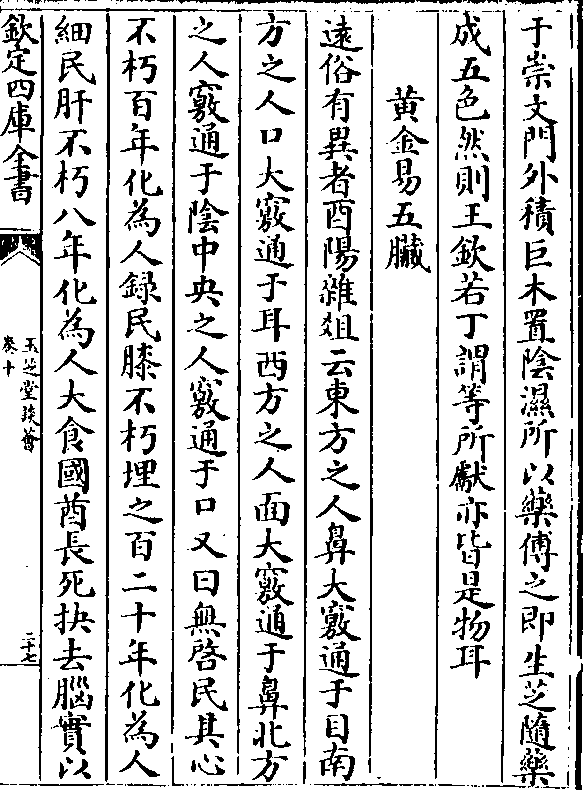 于崇文門外積巨木置陰濕所以藥傅之即生芝隨藥
成五色然則王欽若丁謂等所獻亦皆是物耳
黄金易五臟
逺俗有異者酉陽雜爼云東方之人鼻大竅通于目南
方之人口大竅通于耳西方之人面大竅通于鼻北方
之人竅通于陰中央之人竅通于口又曰無啓民其心
不朽百年化為人録民膝不朽埋之百二十年化為人
細民肝不朽八年化為人大食國酋長死抉去腦實以
欽定四庫全書
玉芝堂談薈
卷十
二十七